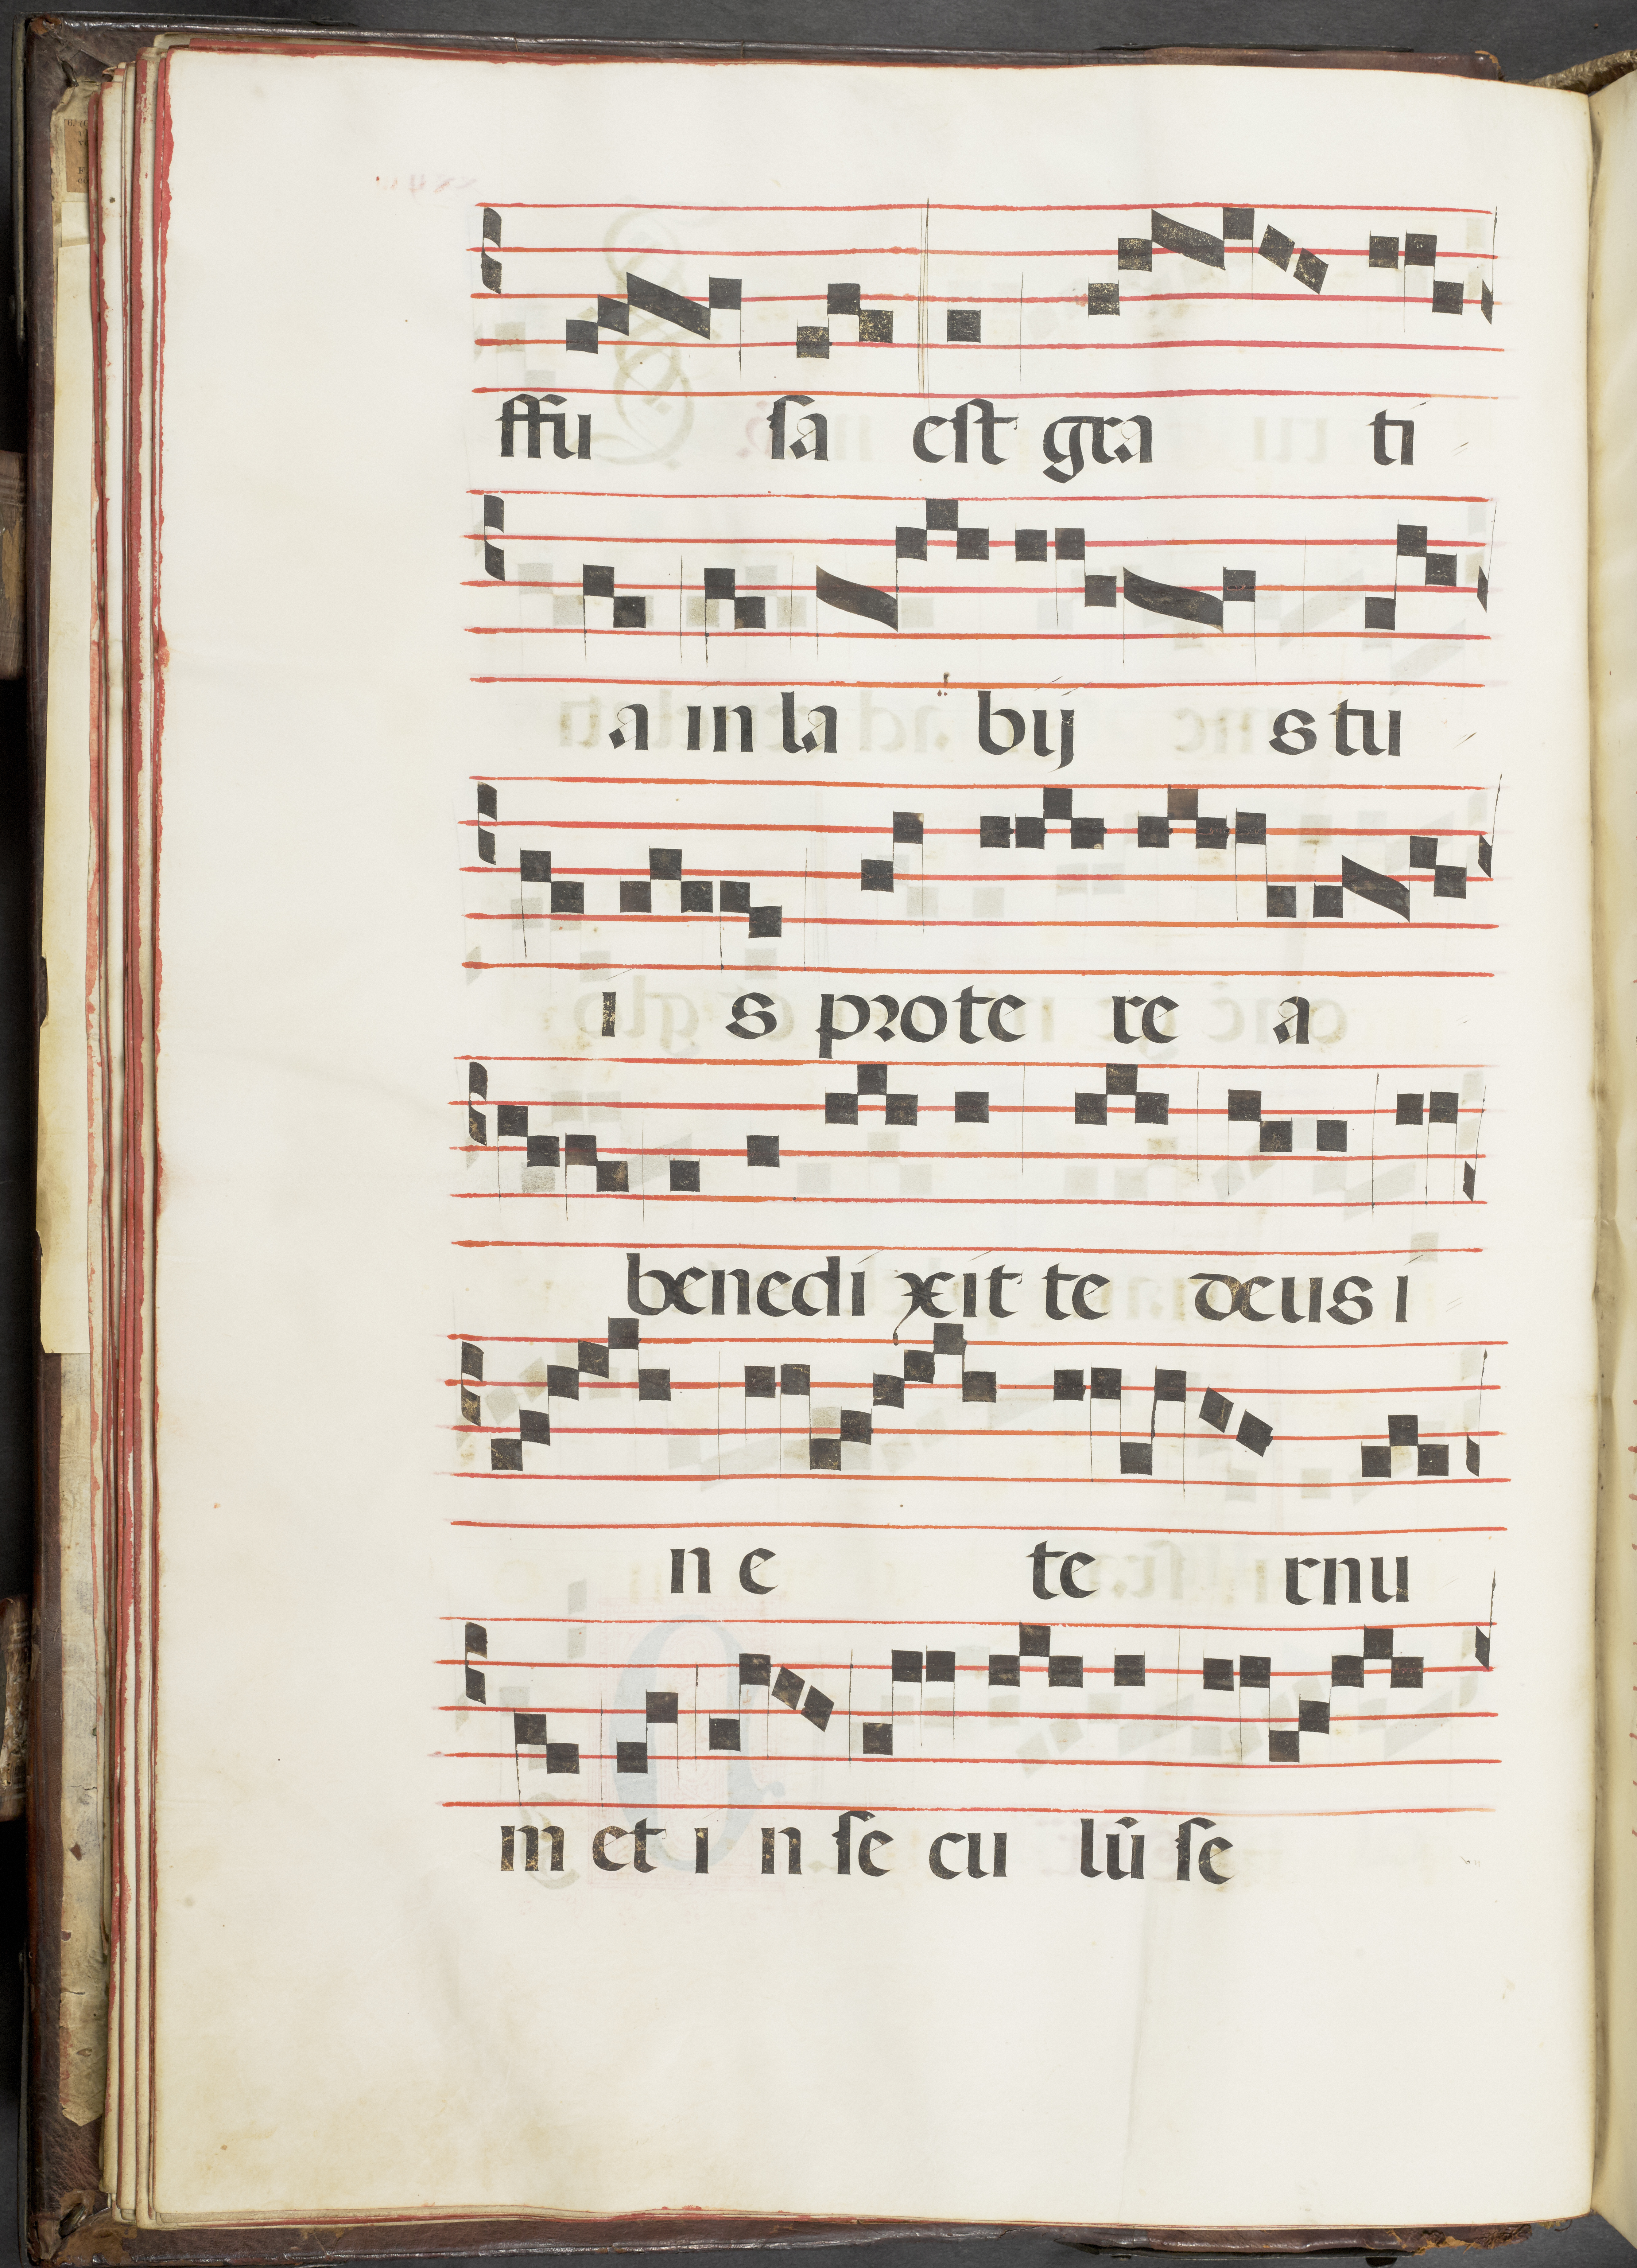 ffu sa est gra ti
a in la bij s tu
i s pro te re a
benedi xit te deus i
n e te rnu
m et i n se cu lū se